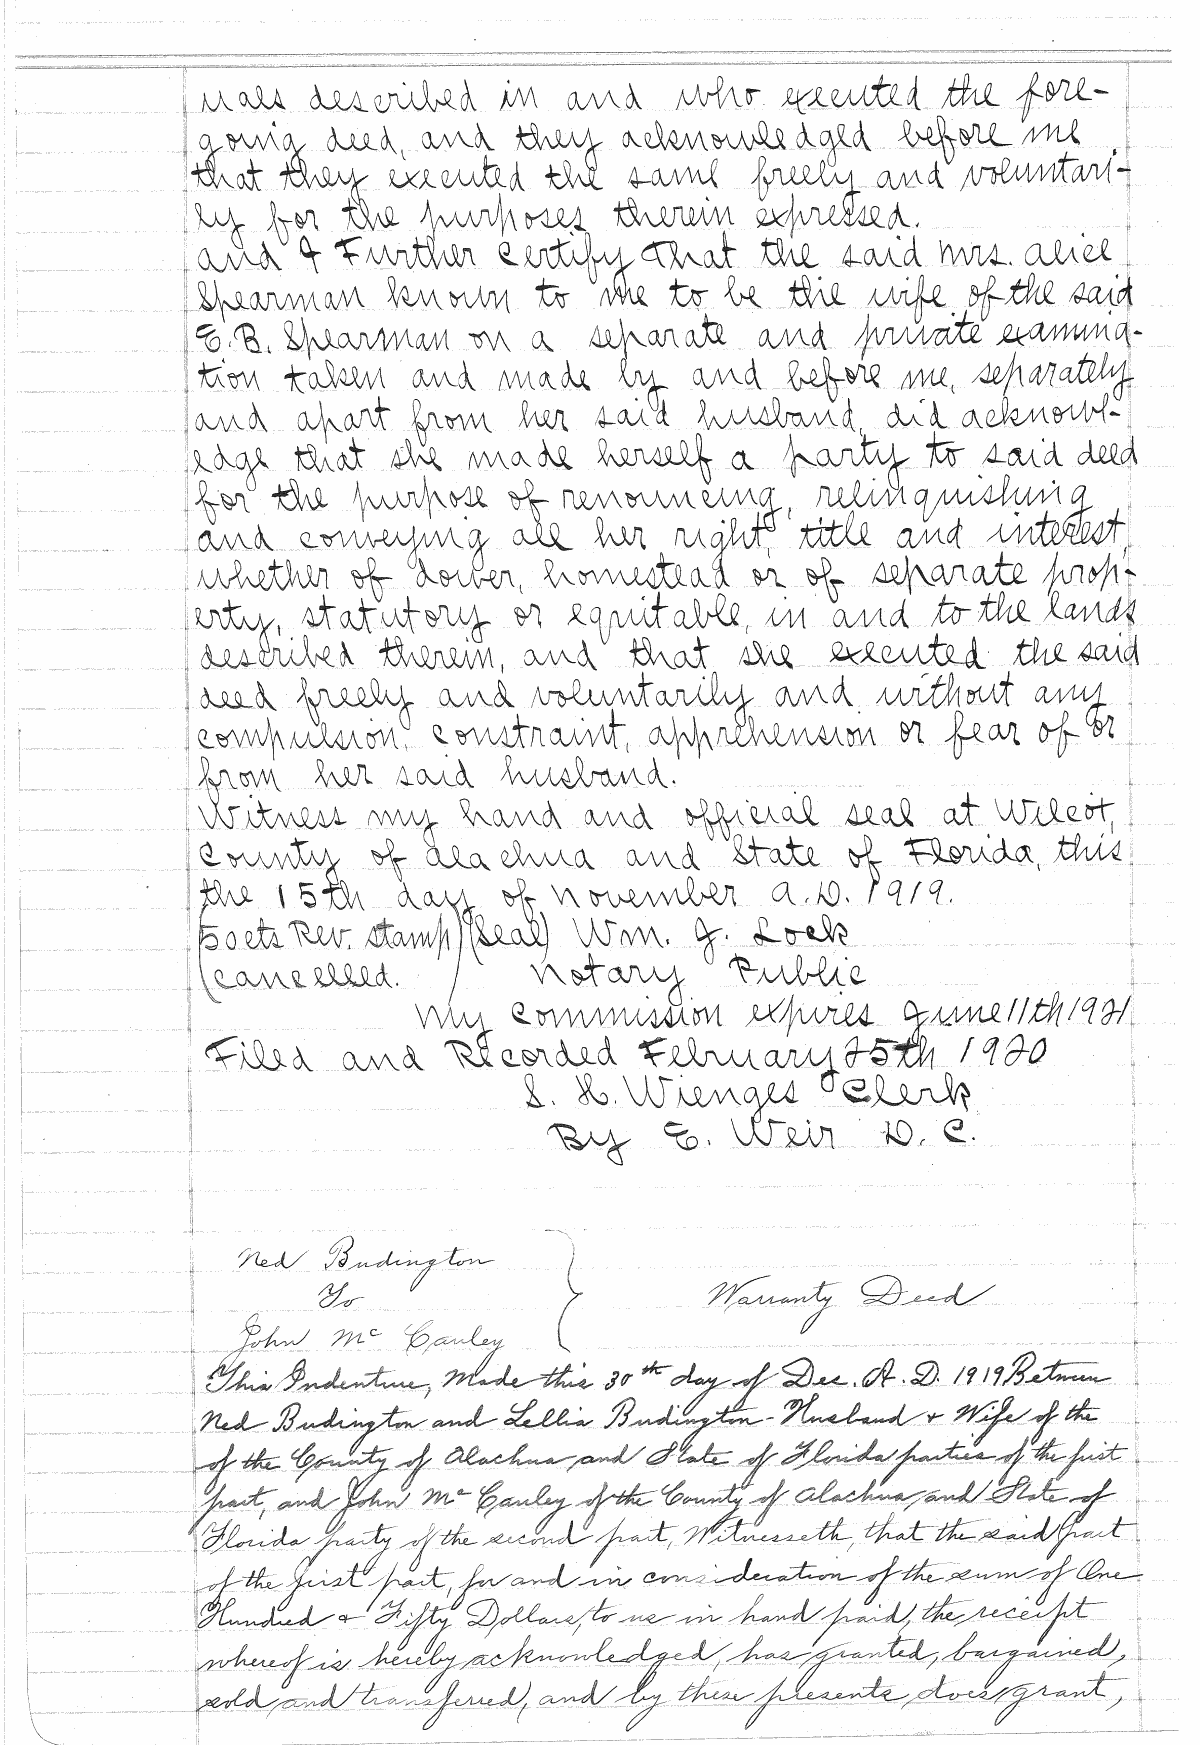 uals described in and who executed the fore-
going deed, and they acknowledged before me
that they executed the same freely and voluntari-
ly for the purposes therein expressed.
and I Further Certify That the said Mrs. Alice
Spearman known to me to be the wife of the said
E. B. Spearman on a separate and private examina-
tion taken and made by and before me, separately
and apart from her said husband, did acknowl-
edge that she made herself a party to said deed
for the purpose of renouncing, relinquishing
and conveying all her right, title and interest,
whether of dower, homestead or of separate prop-
erty, statutory or equitable, in and to the lands
described therein, and that she executed the said
deed freely and voluntarily and without any
compulsion, constraint, apprehension or fear of or
from her said husband.
Witness my hand and official seal at Wilcot,
County of Alachua and State of Florida, this
the 15th day of November A.D. 1919.
50cts Rev. stamp) (Seal) Wm. J. Lock
(cancelled. Notary Public
My Commission expires June 11th 1921
Filed and Recorded February 25th 1920
S. H. Wienges Clerk
By E. Weir D. C.
Ned Budington
To
Warranty Deed
John Mc Cauley
This Indenture, Made this 30th day of Dec. A. D. 1919 Between
Ned Budington and Lellia Budington - Husband & Wife of the
of the County of Alachua and State of Florida parties of the first
part, and John Mc Cauley of the County of Alachua and State of
Florida party of the second part, Witnesseth, that the said part
of the first part, for and in consideration of the sum of One
Hundred & Fifty Dollars, to us in hand paid, the receipt
whereof is hereby acknowledged, has granted, bargained,
sold and transferred, and by these presents does grant,